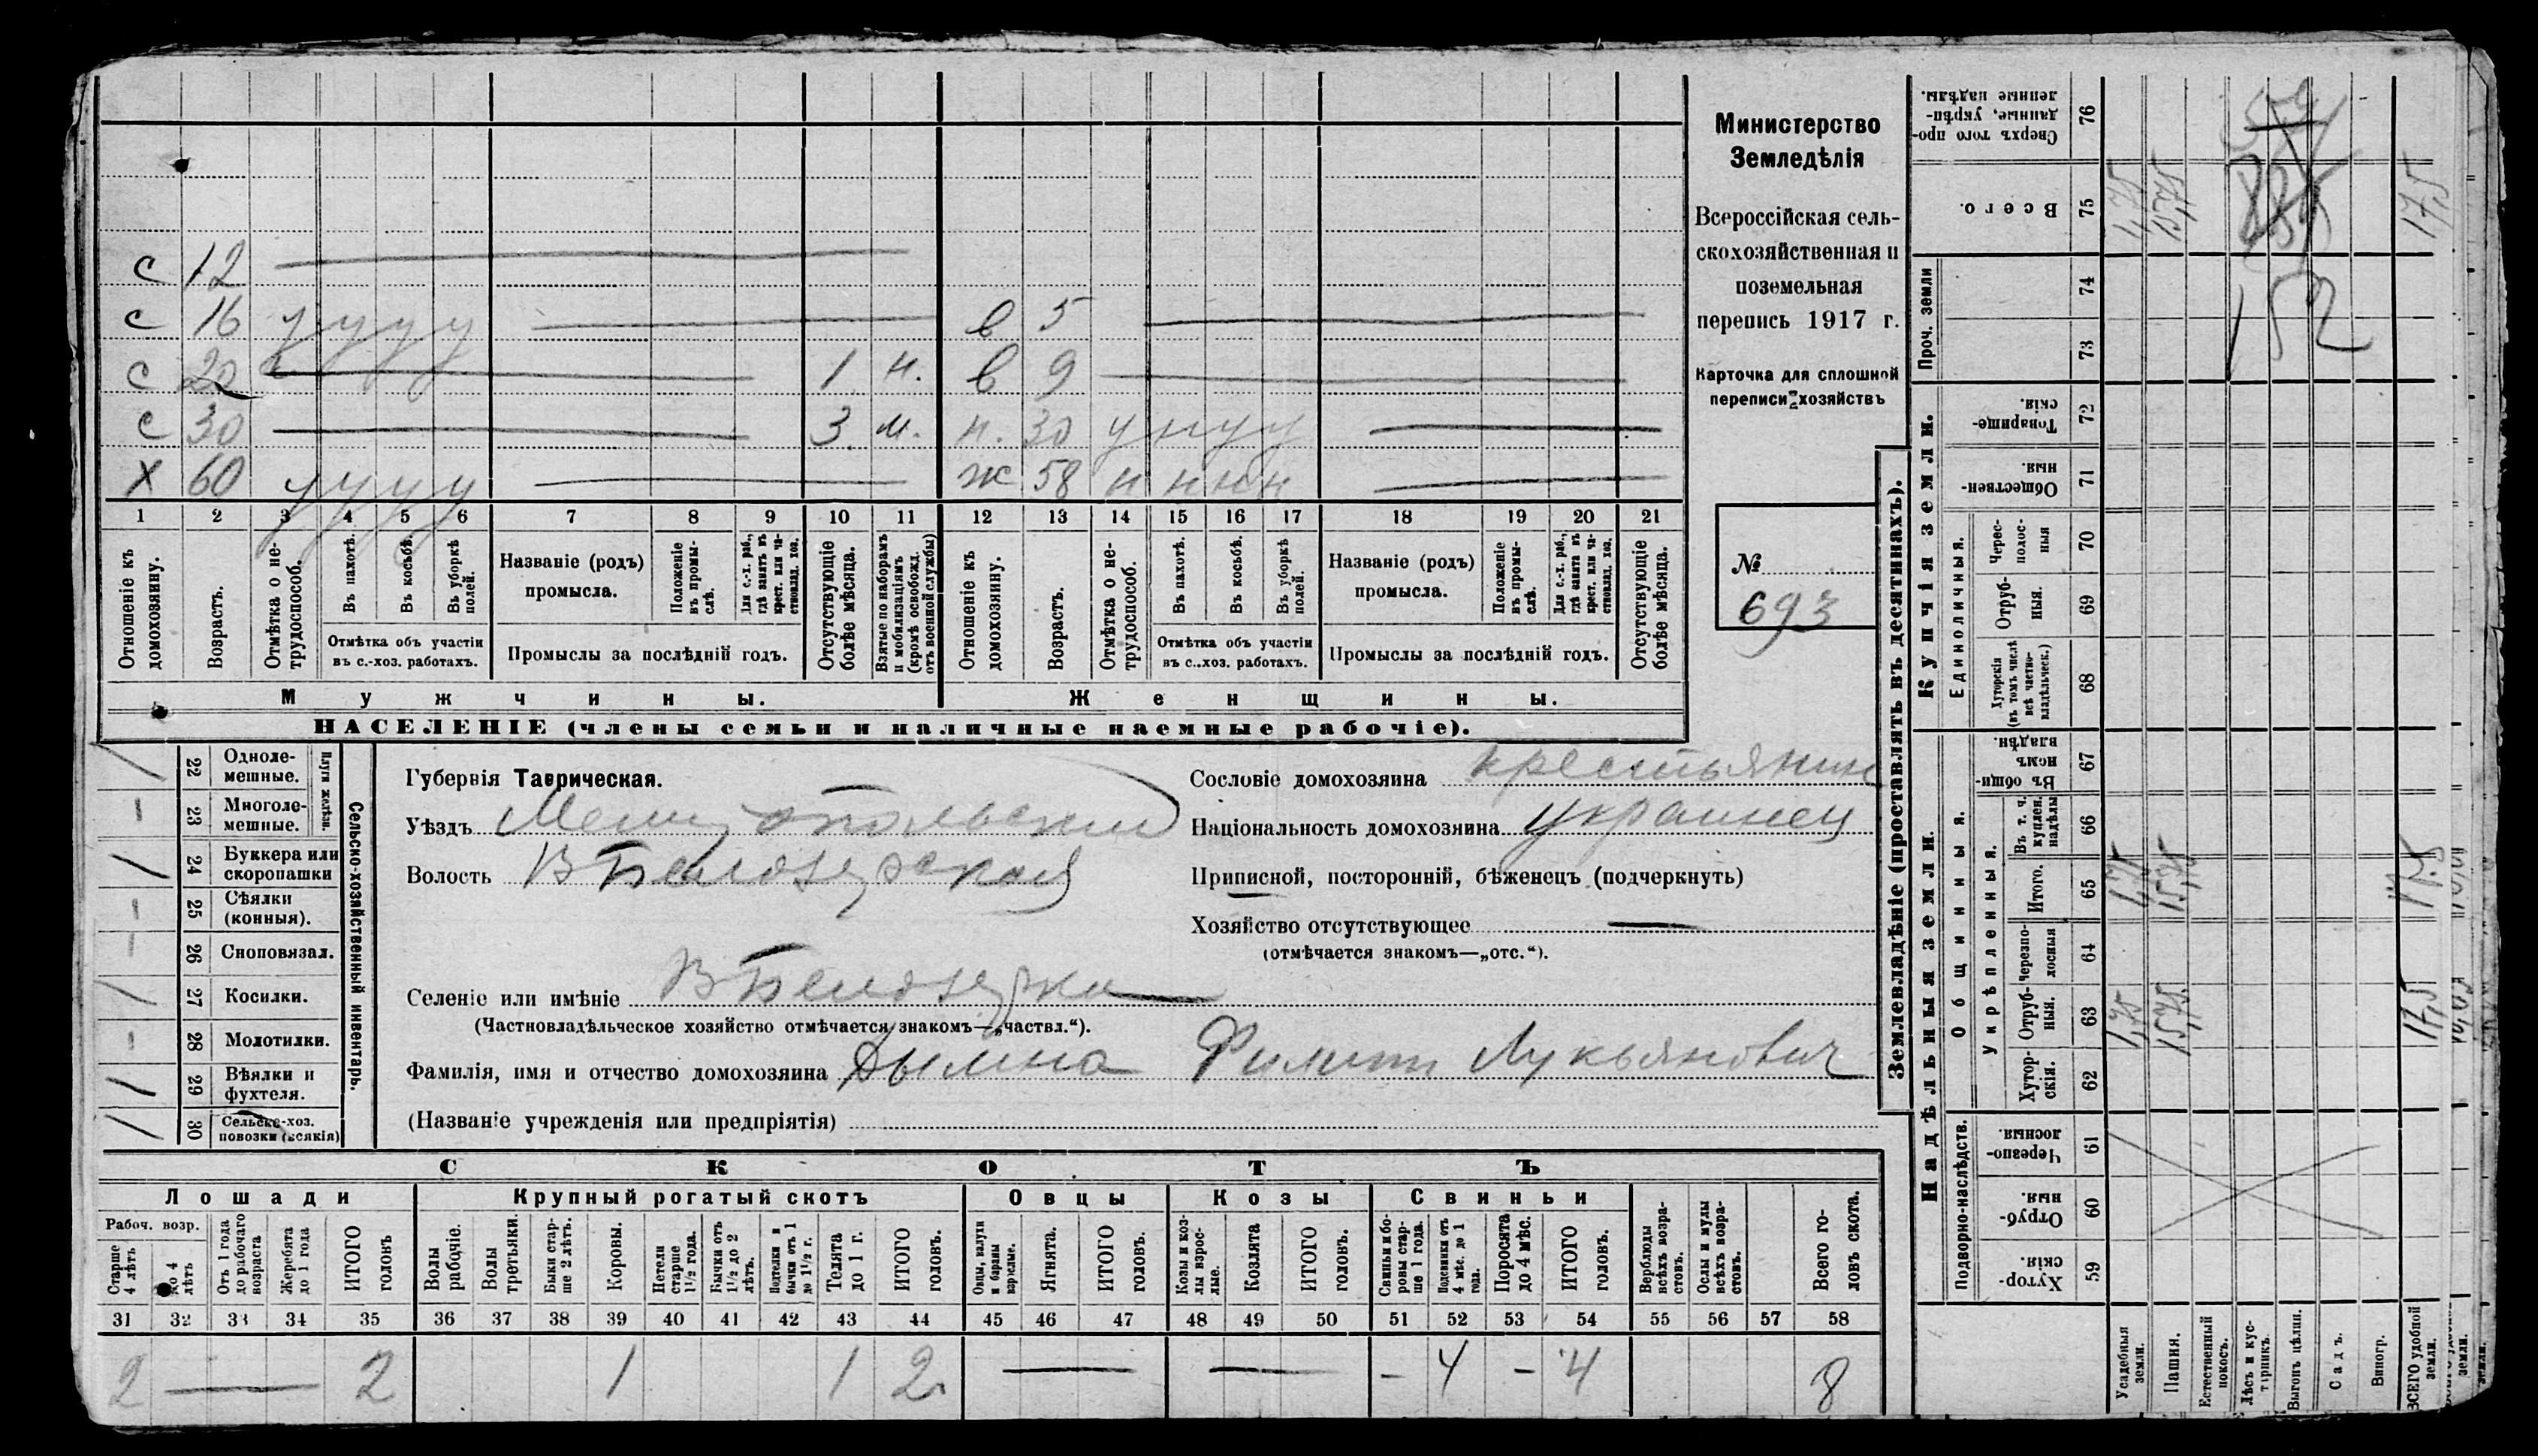 с 12
с 16 у у у у в 5
с 20 1 н. в 9
с 30 3 м. н. 30 у н у у
х 60 у у у у ж 58 н н н н
1 2 3 4 5 6 7 8 9 10 11 12 13 14 15 16 17 18 19 20 21
Отношеніе къ домохозяину.
Возрастъ.
Отмѣтка о нетрудоспособ.
Въ пахотѣ.
Въ косьбѣ.
Въ уборкѣ полей.
Отмѣтка объ участіи въ с.-хоз. работахъ.
Названіе (родъ) промысла.
Положеніе въ промыслѣ.
Для с.-х. раб., гдѣ занятъ въ крест. или частновлад. хоз.
Промыслы за послѣдній годъ.
Отсутствующіе болѣе мѣсяца.
Взятые по наборамъ и мобилизаціямъ (кромѣ освобожд. отъ военной службы)
Отношеніе къ домохозяину.
Возрастъ.
Отмѣтка о нетрудоспособ.
Въ пахотѣ.
Въ косьбѣ.
Въ уборкѣ полей.
Отмѣтка объ участіи въ с..хоз. работахъ.
Названіе (родъ) промысла.
Положеніе въ промыслѣ.
Для с.-х. раб., гдѣ занята въ крест. или частновлад. хоз.
Промыслы за послѣдній годъ.
Отсутствующіе болѣе мѣсяца.
Мужчины.
Женщины.
НАСЕЛЕНІЕ (члены семьи и наличные наемные рабочіе).
Министерство
Земледѣлія
Всероссійская сель-
скохозяйственная и
поземельная
перепись 1917 г.
Карточка для сплошной
переписи хозяйствъ
№
693
22 Однолемешные.
23 Многолемешные.
24 Буккера или скоропашки
25 Сѣялки (конныя).
26 Сноповязал.
27 Косилки.
28 Молотилки.
29 Вѣялки и фухтеля.
30 Сельско-хоз. повозки (всякія)
Плуги желѣзн.
Сельско-хозяйственный инвентарь.
Губернія Таврическая.
Уѣздъ Мелитопольский
Волость ВБелозерская
Селеніе или имѣніе ВБелозерка
(Частновладѣльческое хозяйство отмѣчается знакомъ—„частвл.“).
Фамилія, имя и отчество домохозяина Дымна Филипп Лукьянович
(Названіе учрежденія или предпріятія)
Сословіе домохозяина крестьянин
Національность домохозяина украинец
Приписной, посторонній, бѣженецъ (подчеркнуть)
Хозяйство отсутствующее —
(отмѣчается знакомъ—„отс.“).
СКОТЪ
Лошади
Крупный рогатый скотъ
Овцы
Козы
Свиньи
Рабоч. возр.
Старше 4 лѣтъ
до 4 лѣтъ
Отъ 1 года до рабочаго возраста
Жеребята до 1 года
ИТОГО головъ
Волы рабочіе.
Волы третьяки.
Быки старше 2 лѣтъ.
Коровы.
Нетели старше 1½ года.
Бычки отъ 1½ до 2 лѣтъ.
Подтелки и бычки отъ 1 до 1½ г.
Телята до 1 г.
ИТОГО головъ.
Овцы, валухи и бараны взрослые.
Ягнята.
ИТОГО головъ.
Козы и козлы взрослые.
Козлята
ИТОГО головъ.
Свиньи и боровы старше 1 года.
Подсвинки отъ 4 мѣс. до 1 года.
Поросята до 4 мѣс.
ИТОГО головъ.
Верблюды всѣхъ возрастовъ.
Ослы и мулы всѣхъ возрастовъ.
Всего головъ скота.
31 32 33 34 35 36 37 38 39 40 41 42 43 44 45 46 47 48 49 50 51 52 53 54 55 56 57 58
2 — 2 1 1 2 — — – 4 – 4 8
Землевладѣніе (проставлять въ десятинахъ).
Купчія земли.
Надѣльныя земли.
Сверхъ того проданные, укрѣпленные надѣлы. 76
Всего. 75
Проч. земли
74
73
Товарищескія. 72
Общественныя. 71
Единоличныя.
Чересполосныя 70
Отрубныя. 69
Хуторскія (въ томъ числѣ всѣ частновладѣльческ.) 68
Общинныя.
Въ общинномъ владѣн. 67
Укрѣпленныя.
Въ т. ч. куплен. надѣлы 66
Итого. 65
Черезполосныя 64
Отрубныя. 63
Хуторскія. 62
Подворно-наслѣдств.
Черезполосныя. 61
Отрубныя. 60
Хуторскія. 59
Усадебныя земли.
Пашня.
Естественный покосъ.
Лѣсъ и кустарникъ.
Выгонъ цѣлин.
Садъ.
Виногр.
ВСЕГО удобной земли.
1,75 15,75 17,5
1,75 15,75 17,5
1,75 15,75 17,5
152